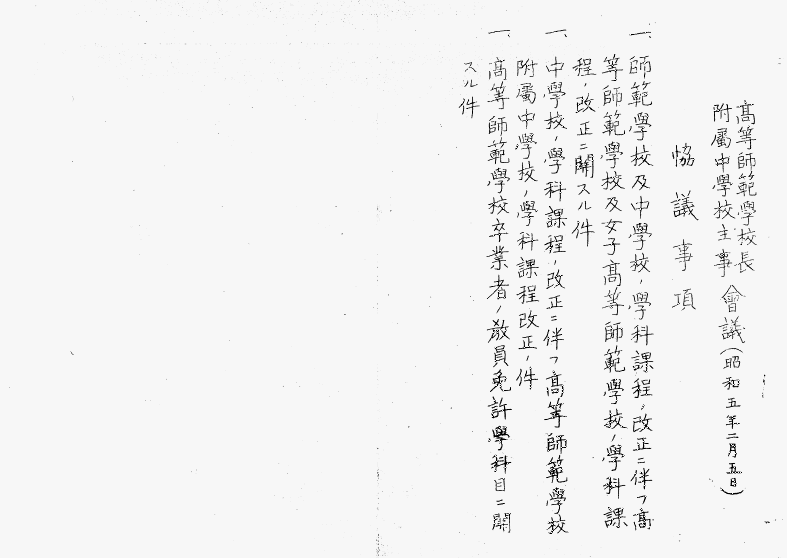 高等師範學校長
附屬中學校主事
會議(昭和五年二月五日)
恊議事項
一、師範學校及中學校ノ學科課程ノ改正ニ伴フ高
等師範學校及女子高等師範學校ノ學科課
程ノ改正ニ關スル件
一、中學校ノ學科課程ノ改正ニ伴フ高等師範學校
附屬中學校ノ學科課程改正ノ件
一、高等師範學校卒業者ノ敎員免許學科目ニ關
スル件